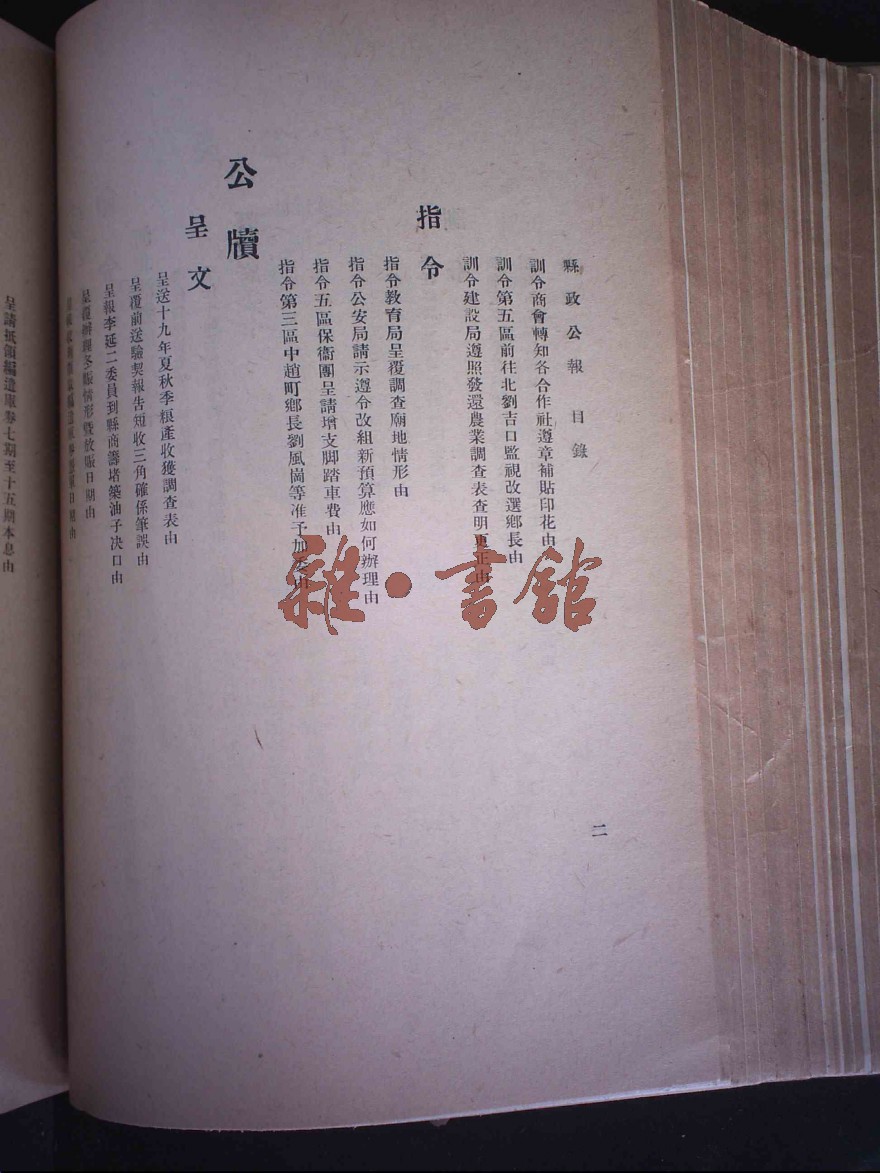 縣政公報 目錄
二
訓令商會轉知各合作社遵章補貼印花由
訓令第五區前往北劉吉口監視改選鄉長由
訓令建設局遵照發還農業調查表查明更正由
指令
指令教育局呈覆調查廟地情形由
指令公安局請示遵令改組新預算應如何辦理由
指令五區保衞團呈請增支脚踏車費由
指令第三區中趙町鄉長劉風崗等准予加委由
公牘
呈文
呈送十九年夏秋季粮產收獲調查表由
呈覆前送驗契報告短收三角確係筆誤由
呈報李延二委員到縣商籌堵築油子決口由
呈覆辦理冬賑情形暨放賑日期由
日期由
呈請抵領編遣庫券七期至十五期本息由
雜·書館